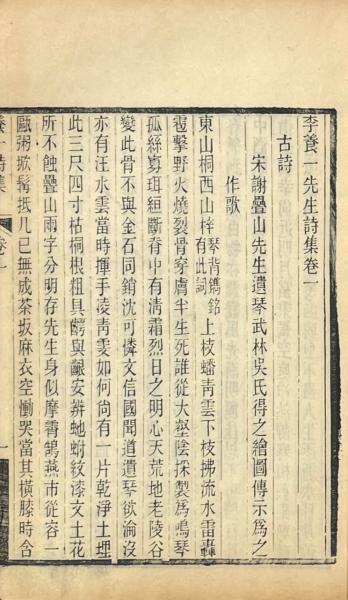 李養一先生詩集卷一
古詩
宋謝疊山先生遺琴武林吳氏得之繪圖傳示爲之
作歌
東山桐西山梓琴背鐫銘有此詞上枝蟠青雲下枝拂流水雷轟
雹擊野火燒裂骨穿膚半生死誰從大壑陰採製爲鳴琴
孤絲寡珥絙斷脊中有淸霜烈日之明心天荒地老陵谷
變此骨不與金石同銷沈可憐文信國聞道遺琴欲淪沒
亦有汪水雲當時揮手凌靑雯如何尙有一片乾淨土埋
此三尺四寸枯桐根粗具齶與齦安辨虵蚹紋漆文土花
所不蝕疊山兩字分明存先生身似摩霄鵠燕市從容一
甌粥掀髯抵几已無成茶坂麻衣空慟哭當其橫膝時合
養一詩集
卷一
一